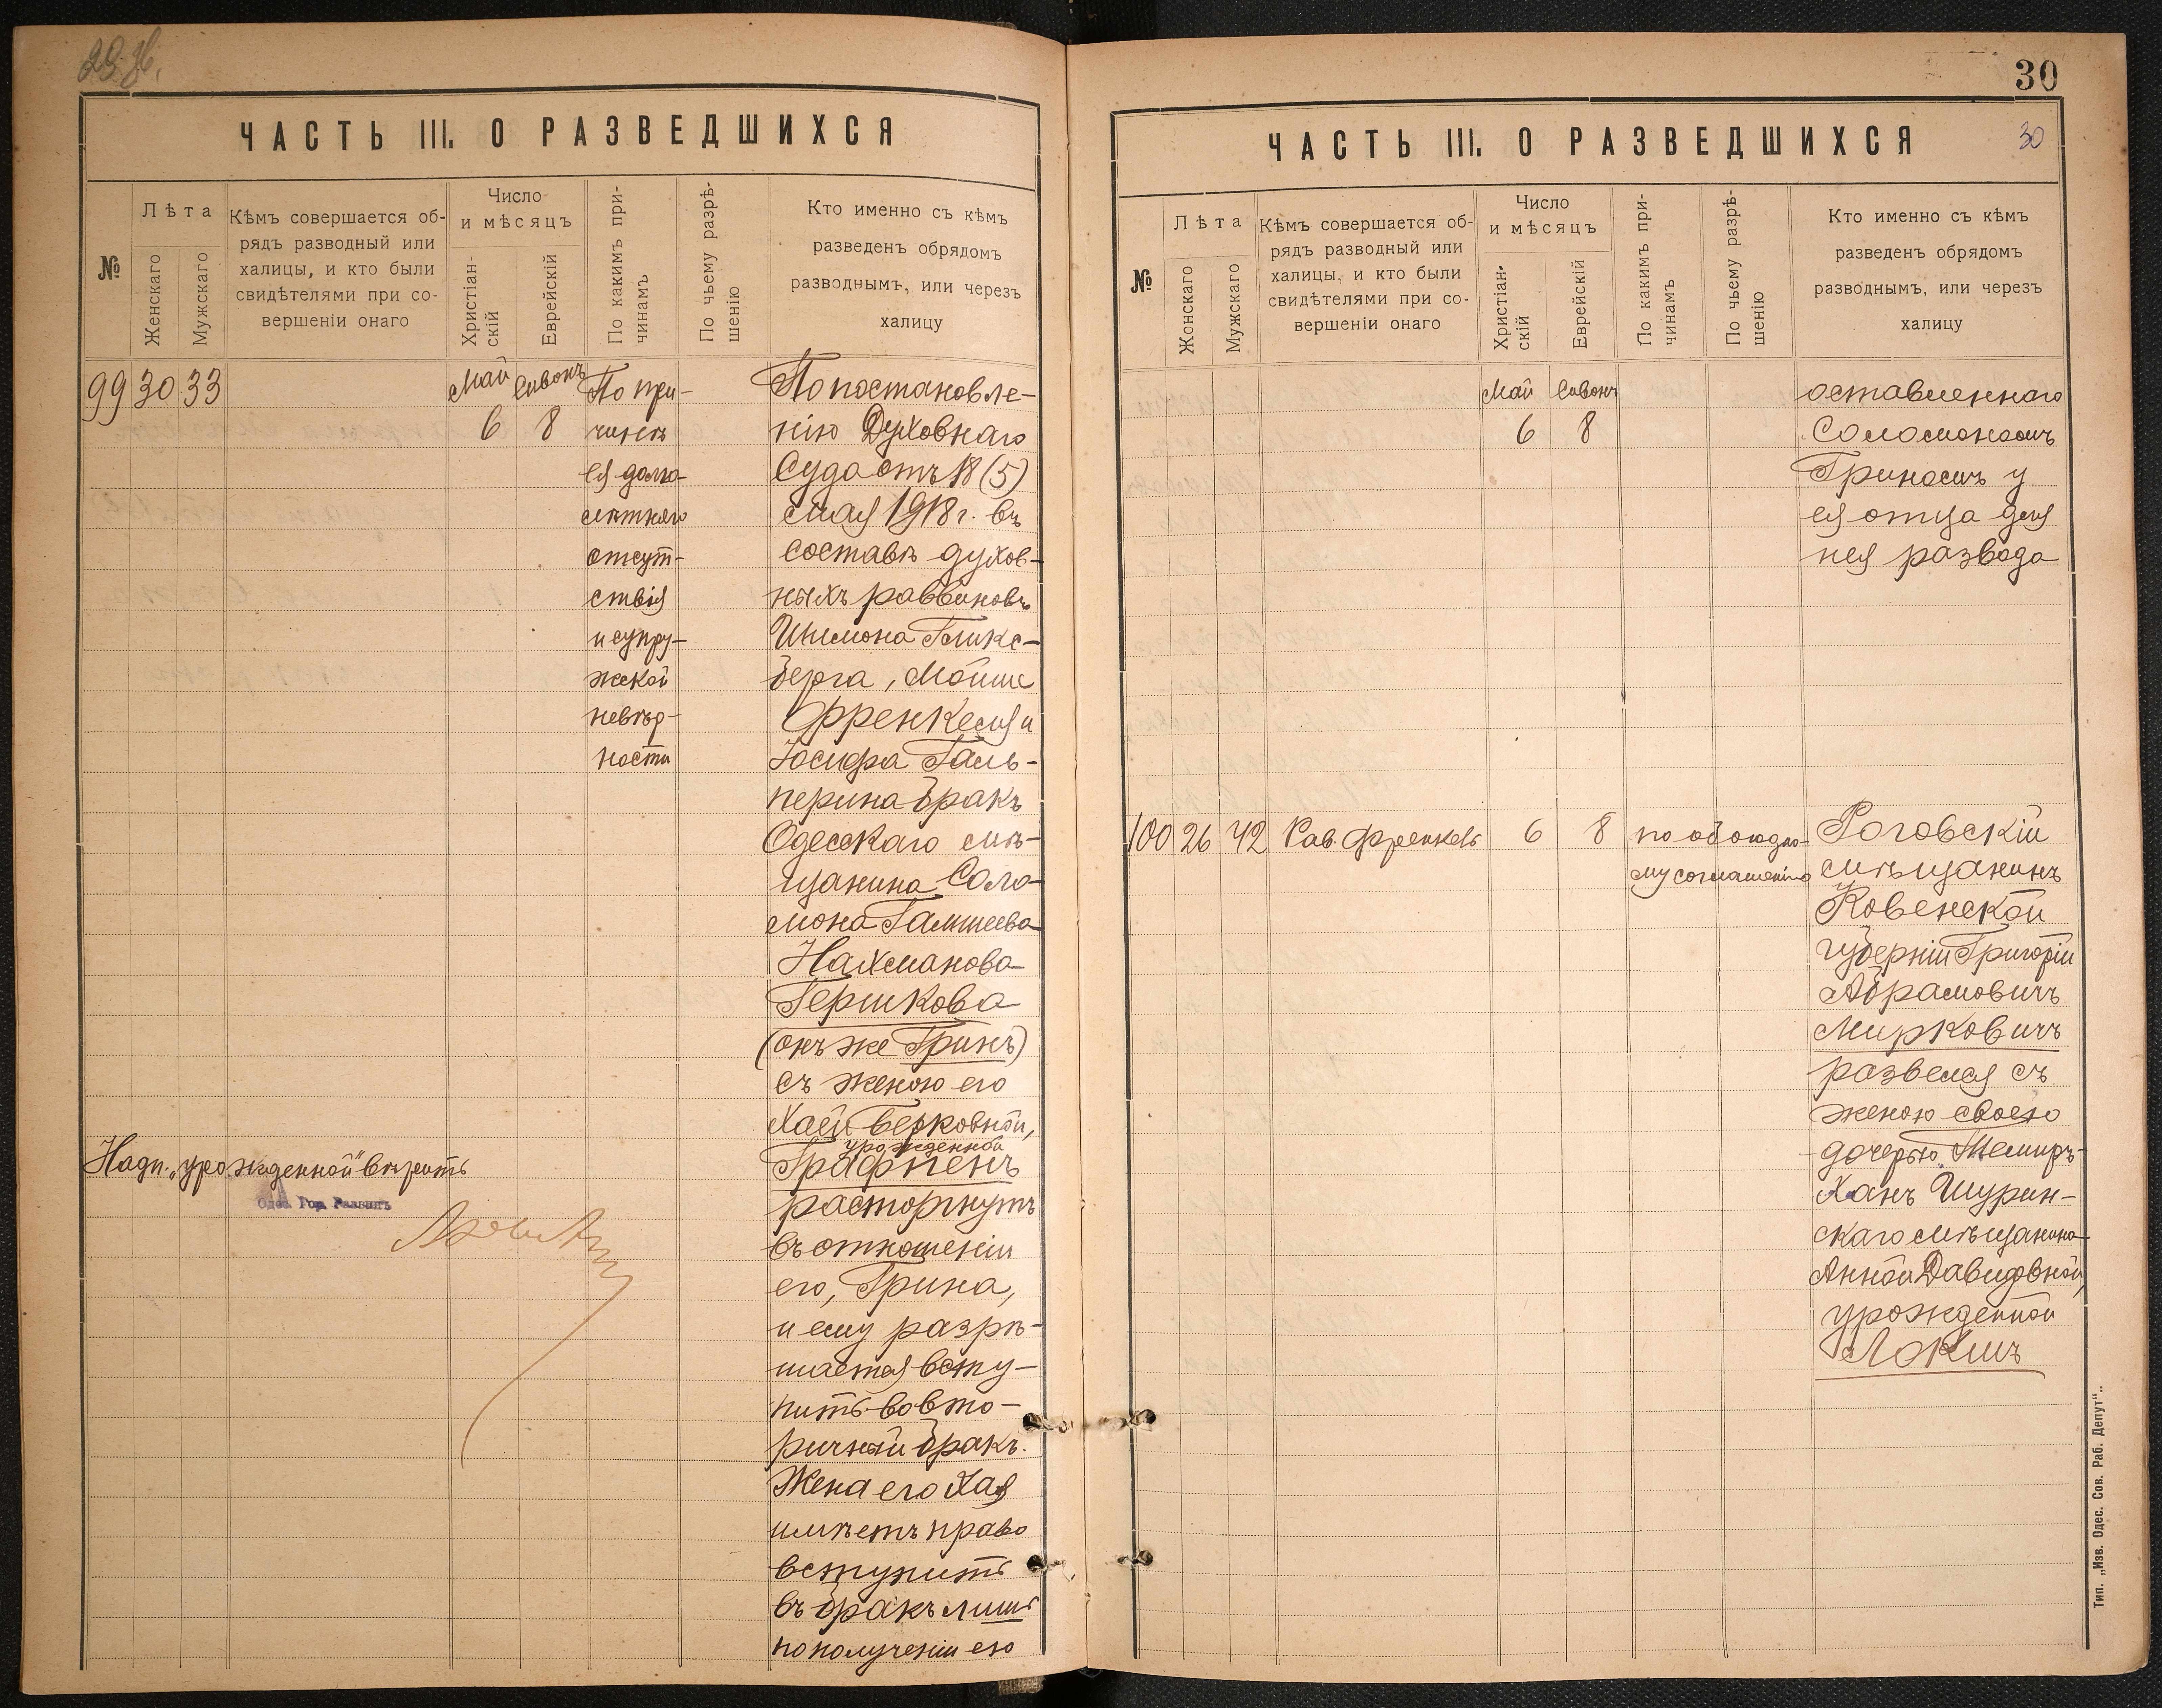 ЧАСТЬ III. О РАЗВЕДШИХСЯ
№
Лѣта
Женскаго
Мужскаго
Кѣмъ совершается об-
рядъ разводный или
халицы, и кто были
свидѣтелями при со-
вершеніи онаго
Число
и мѣсяцъ
Христіан-
скій
Еврейскій
По какимъ при-
чинамъ
По чьему разрѣ-
шенію
Кто именно съ кѣмъ
разведенъ обрядомъ
разводнымъ, или черезъ
халицу
99 30 33
Май
6
Сивонъ
8
По при-
чинѣ
ея долго-
лѣтняго
отсут-
ствія
и супру-
жеской
невѣр-
ности
По постановле-
нію Духовнаго
Суда отъ 18 (5)
мая 1918 г. въ
составѣ духов-
ныхъ раввиновъ
Шимона Гликс-
берга, Мойше
Френкеля и
Іосифа Галь-
перина бракъ
Одесскаго мѣ-
щанина Соло-
мона Гамшеева
Нахманова
Гершкова
(онъ же Гринъ)
съ женою его
Хаей Берковной,
урожденной
Графпенъ
расторгнутъ
въ отношеніи
его, Грина,
и ему разрѣ-
шается всту-
пить во вто-
ричный бракъ.
Жена его Хая
имѣетъ право
вступить
въ бракъ лишь
по полученіи ею
Надп. „урожденной" вѣрить
Одес. Гор. Раввинъ
30
ЧАСТЬ III. О РАЗВЕДШИХСЯ
30
№
Лѣта
Жонскаго
Мужскаго
Кѣмъ совершается об-
рядъ разводный или
халицы, и кто были
свидѣтелями при со-
вершеніи онаго
Число
и мѣсяцъ
Христіан-
скій
Еврейскій
По какимъ при-
чинамъ
По чьему разрѣ-
шенію
Кто именно съ кѣмъ
разведенъ обрядомъ
разводнымъ, или черезъ
халицу
Май
6
Сивонъ
8
оставленнаго
Соломономъ
Гриномъ у
ея отца для
нея развода
100 26 42 Рав. Френкель 6 8
по обоюдно-
му соглашенію
Роговскій
мѣщанинъ
Ковенской
губерніи Григорій
Абрамовичъ
Мирковичъ
развелся съ
женою своею
дочерью Темиръ-
Ханъ Шурин-
скаго мѣщанина
Анной Давидовной,
урожденной
Локшъ
Тип. „Изв. Одес. Сов. Раб. Депут".